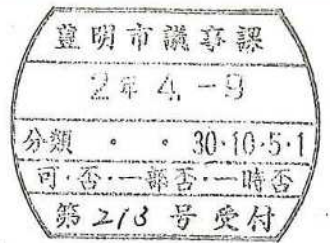 豊明市議事課
2年4.-9
分類 ・ ・ 30・10・5・1
可・否・一部否・一時否
第213号受付